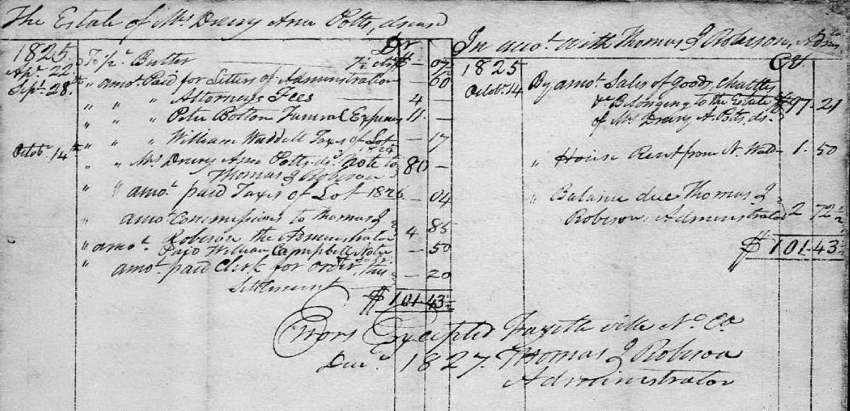 The Estate of Mrs Drury Ann Potts, decd
Dr
1825
Apl. 22 To pr Butter 07
Sept. 28th " amot. Paid for Letters of Administration 60
" " " Attorneys Fees 4 —
" " " Peter Botton Funeral Expences 11 —
" " " William Waddell Taxes of Lot 1825 — 17
Octobr. 14th " Mrs Drury Ann Potts, ds. note to
Thomas J Robison 80 —
" amot. paid Taxes of Lot 1826 — 04
" amot Commissions to Thomas J
Robison the Administrator 4 85
" amot. Paid William Campbell — 50
" amot. paid Clerk for order this
Settlement — 20
$ 101.43
In amot. with Thomas J Robison, Adm
Cr
1825
Octobr. 14 By amot. Sales of goods, chattles
&c Belonging to the Estate
of Mrs Drury A Potts, ds. $97-21
" House Rent from N. 1-50
" Balance due Thomas J
Robison Administrator 2 72
$ 101-43
Errors Excepted Fayetteville No. Ca
Decr. 1827. Thomas J Robison
Administrator